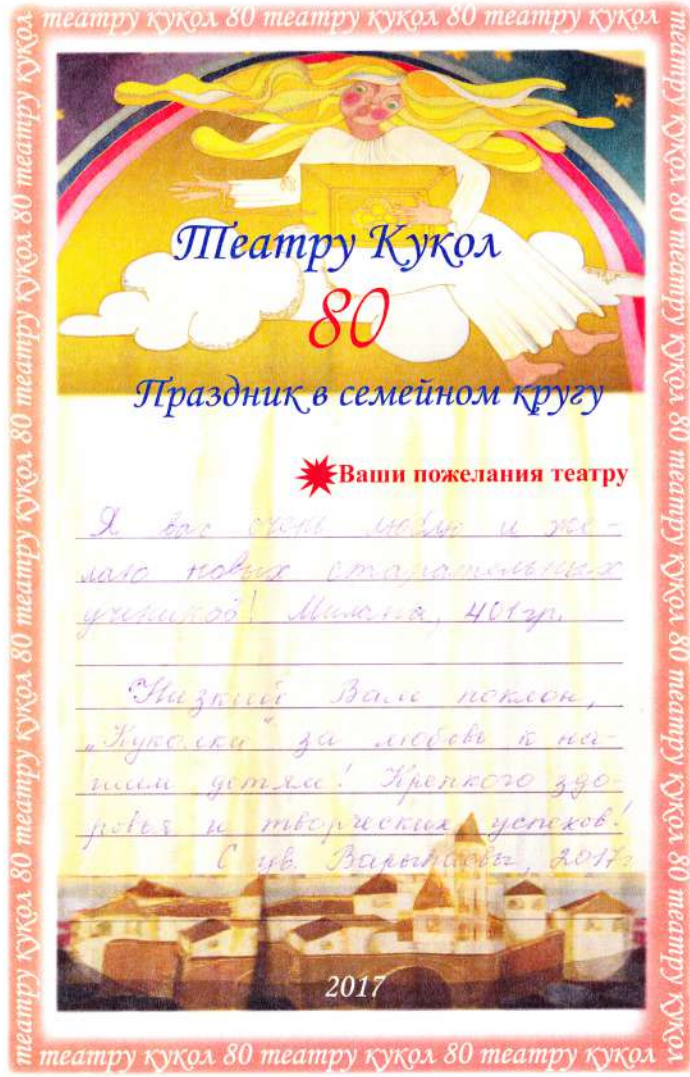 театру кукол 80 театру кукол 80 театру кукол 80 театру кукол
Театру Кукол
80
Праздник в семейном кругу
Ваши пожелания театру
Я вас очень люблю и же-
лаю новых старательных
учеников! Милана, 401гр.
Низкий Вам поклон,
„Куколки“ за любовь к на-
шим детям! Крепкого здо-
ровья и творческих успехов!
С ув. 2017г
2017
театру кукол 80 театру кукол 80 театру кукол 80 театру кукол